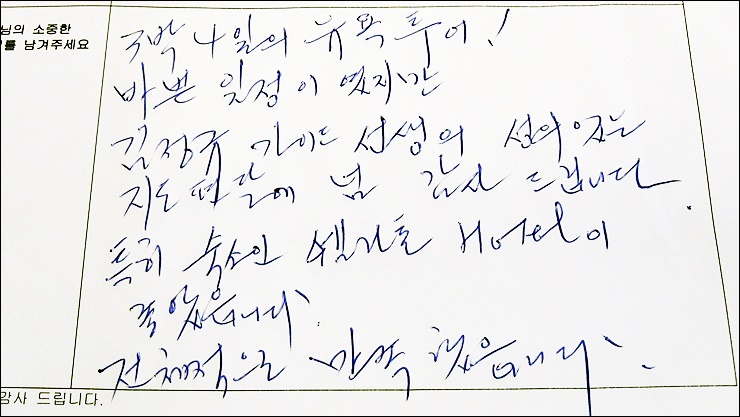 님의 소중한
를 남겨주세요
3박 4일의 뉴욕 투어!
바쁜 일정이 였지만
김정규 가이드 선생의 성의있는
지도 편달에 넘 감사 드립니다
특히 숙소인 쉐라톤 Hotel이
좋았습니다.
전체적으로 만족 했습니다.
감사 드립니다.